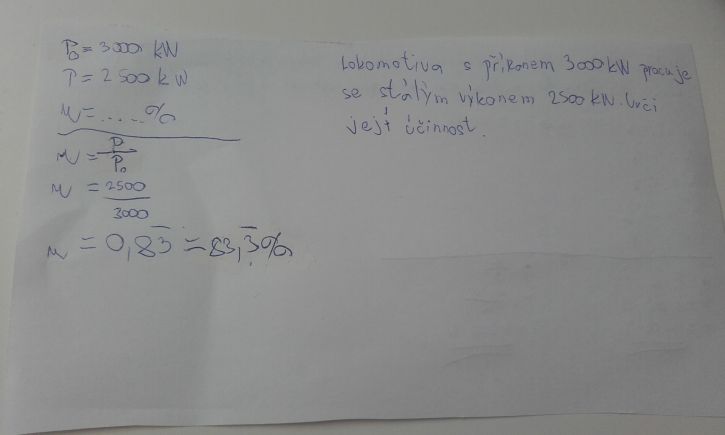 P₀ = 3000 kW
P = 2500 kW
η = ..... %
η = P / P₀
η = 2500 / 3000
η = 0,83̅ = 83,3̅%
Lokomotiva s příkonem 3000 kW pracuje
se stálým výkonem 2500 kW. Urči
její účinnost.